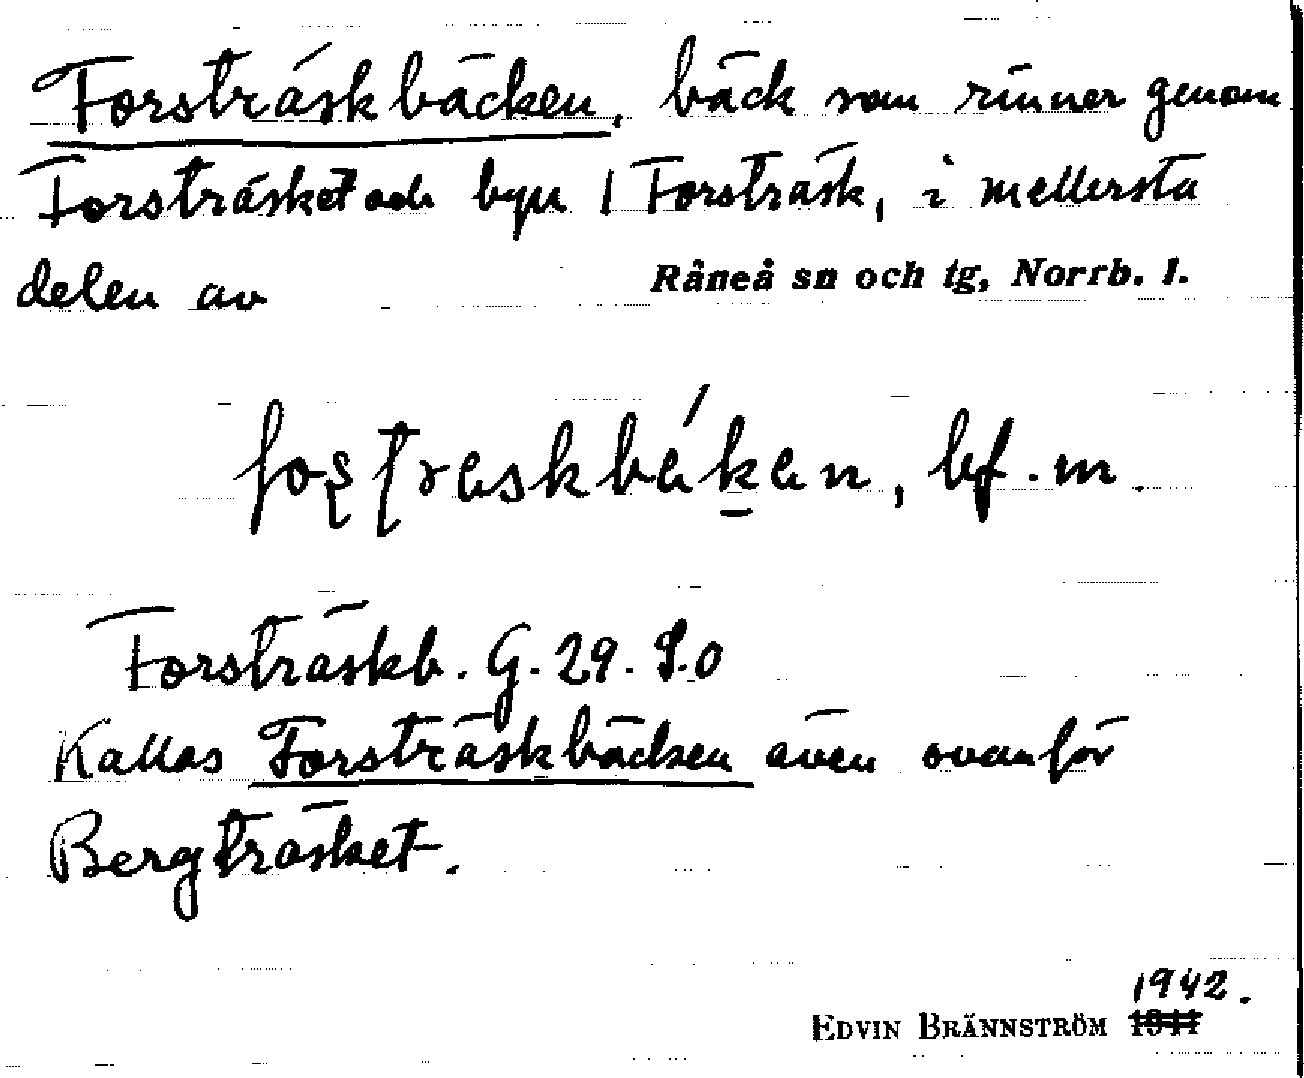 Forsträskbäcken, bäck som rinner genom
Forsträsket och byn Forsträsk, i mellersta
delen av Råneå sn och tg, Norrb. l.
bf. m.
Forsträskb. G. 29. S.O
Kallas Forsträskbäcken även ovanför
Bergträsket.
1942.
EDVIN BRÄNNSTRÖM 1941